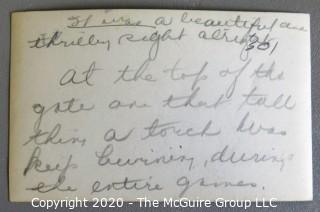 It was a beautiful and
thrilling sight alright
301
at the top of the
gate and that tall
thing a torch was
kep burning, during
the entire games.
Copyright 2020 - The McGuire Group LLC